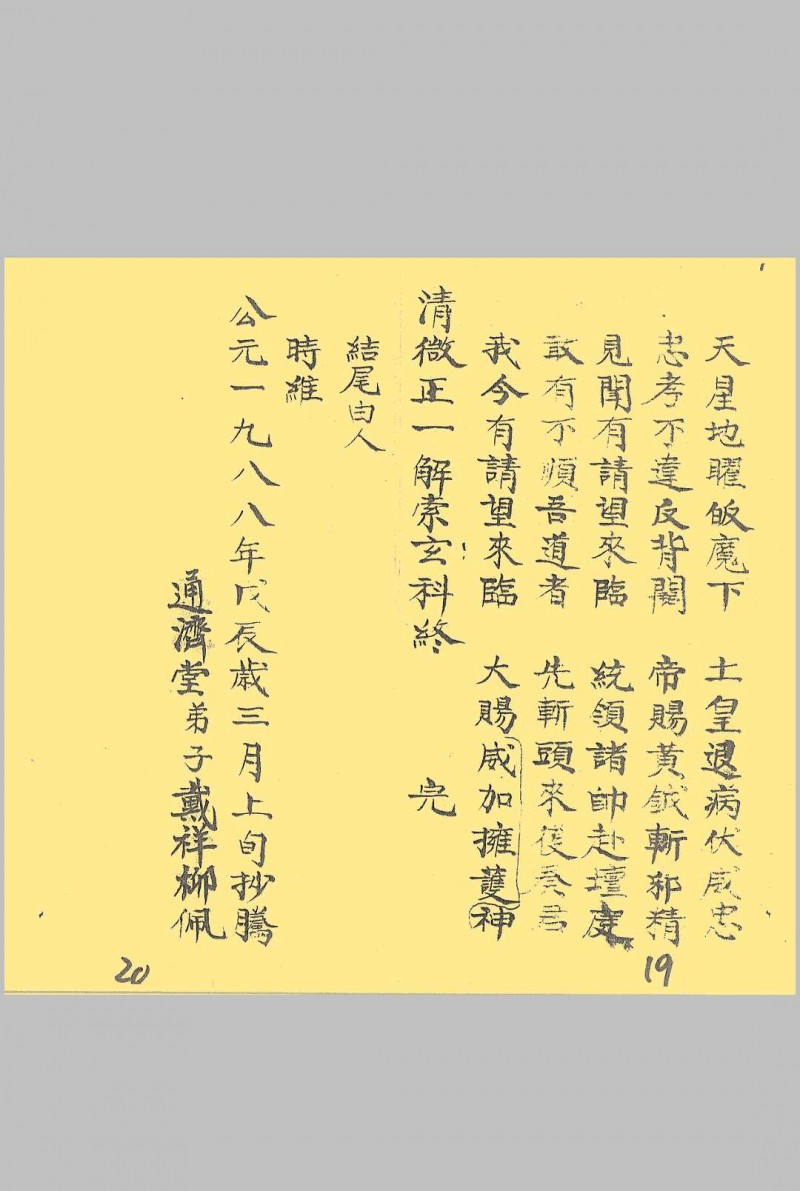 天星地曜皈魔下　土皇退病伏威忠
忠孝不違反背關　帝賜黃鉞斬邪精
見聞有請望來臨　統領諸帥赴壇庭
敢有不順吾道者　先斬頭來後奏君
我今有請望來臨　大賜威加擁護神
清微正一解索玄科終　完
結尾由人
時維
公元一九八八年戊辰歲三月上旬抄騰
通濟堂弟子戴祥柳佩
19
20